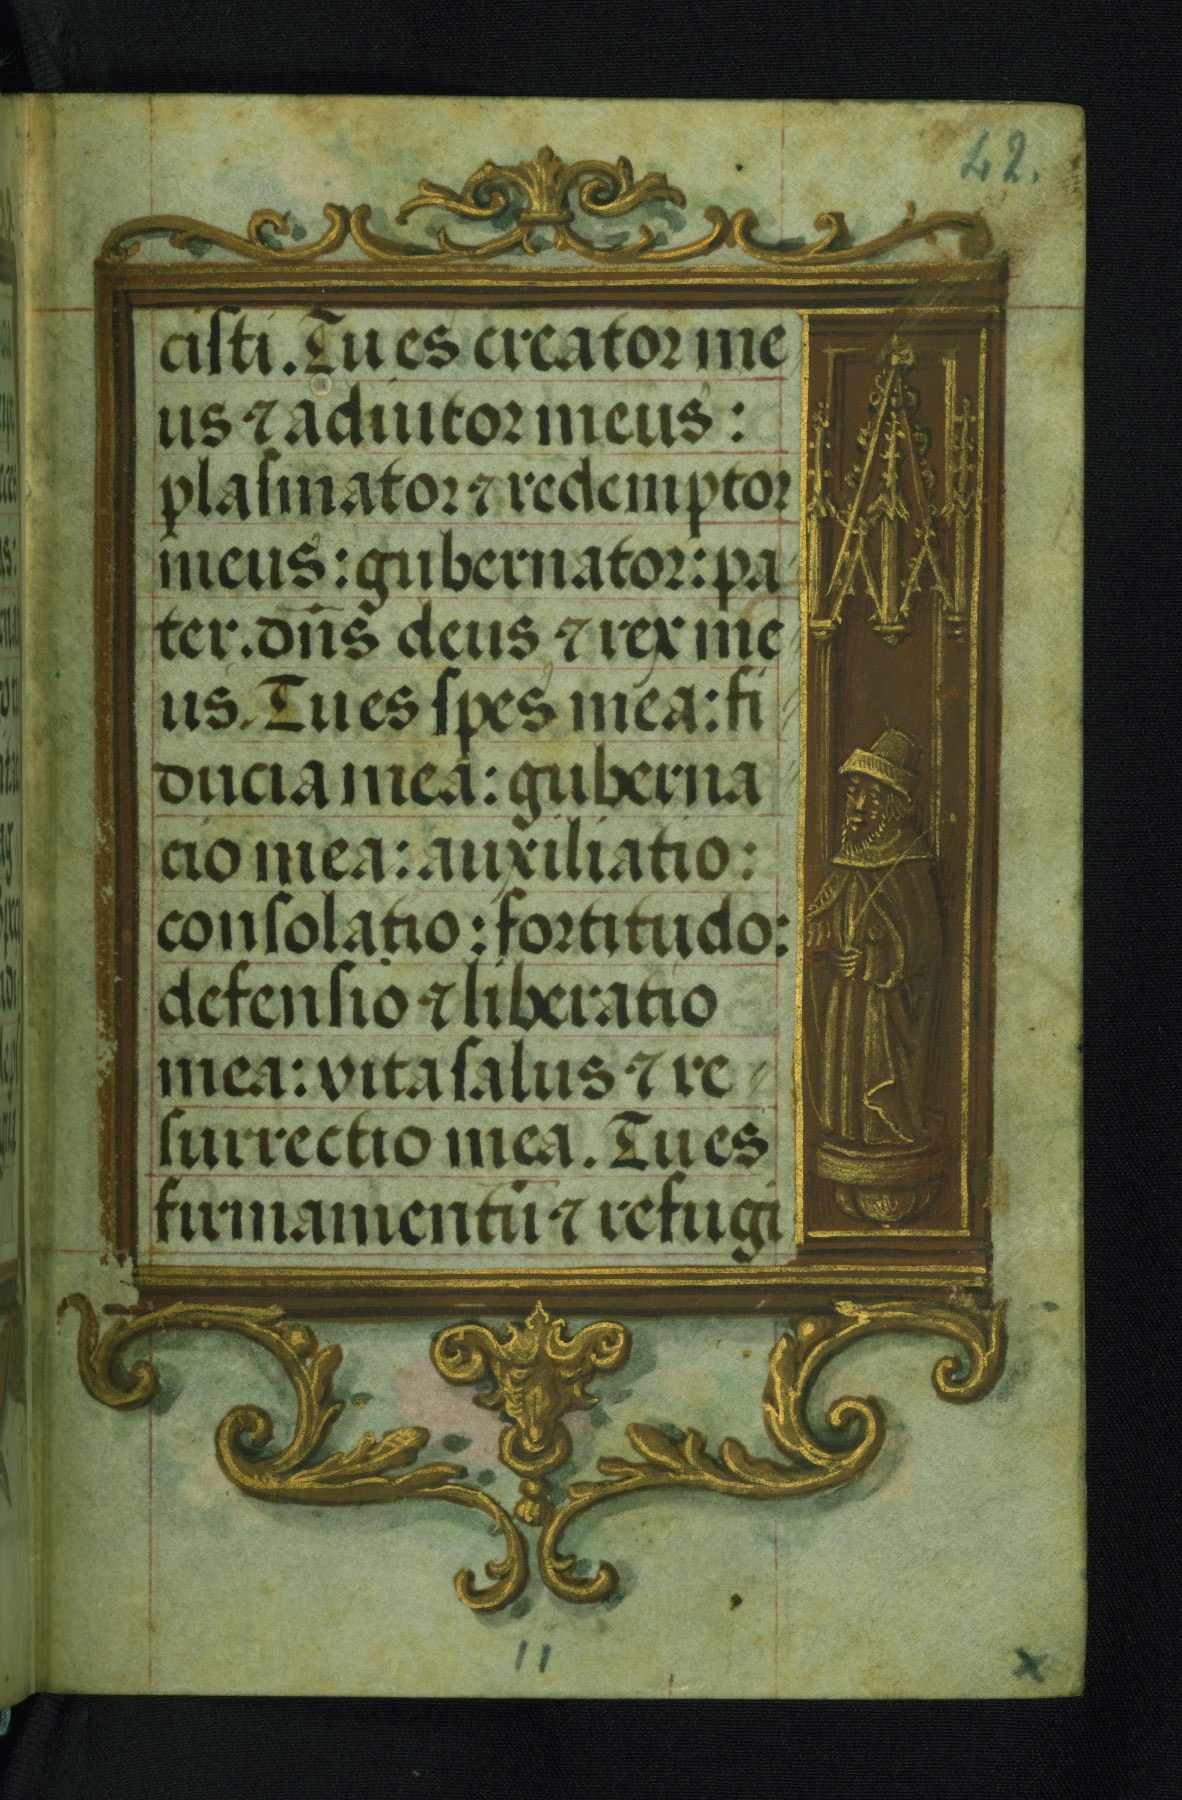 42.
cisti. Tu es creator me
us ⁊ adiutor meus :
plasmator ⁊ redemptor
meus : gubernator : pa
ter. dn̄s deus ⁊ rex me
us. Tu es spes mea : fi
ducia mea : guberna
cio mea : auxiliatio :
consolatio : fortitudo :
defensio ⁊ liberatio
mea : vita salus ⁊ re
surrectio mea. Tu es
firmamentū ⁊ refugi
11
x